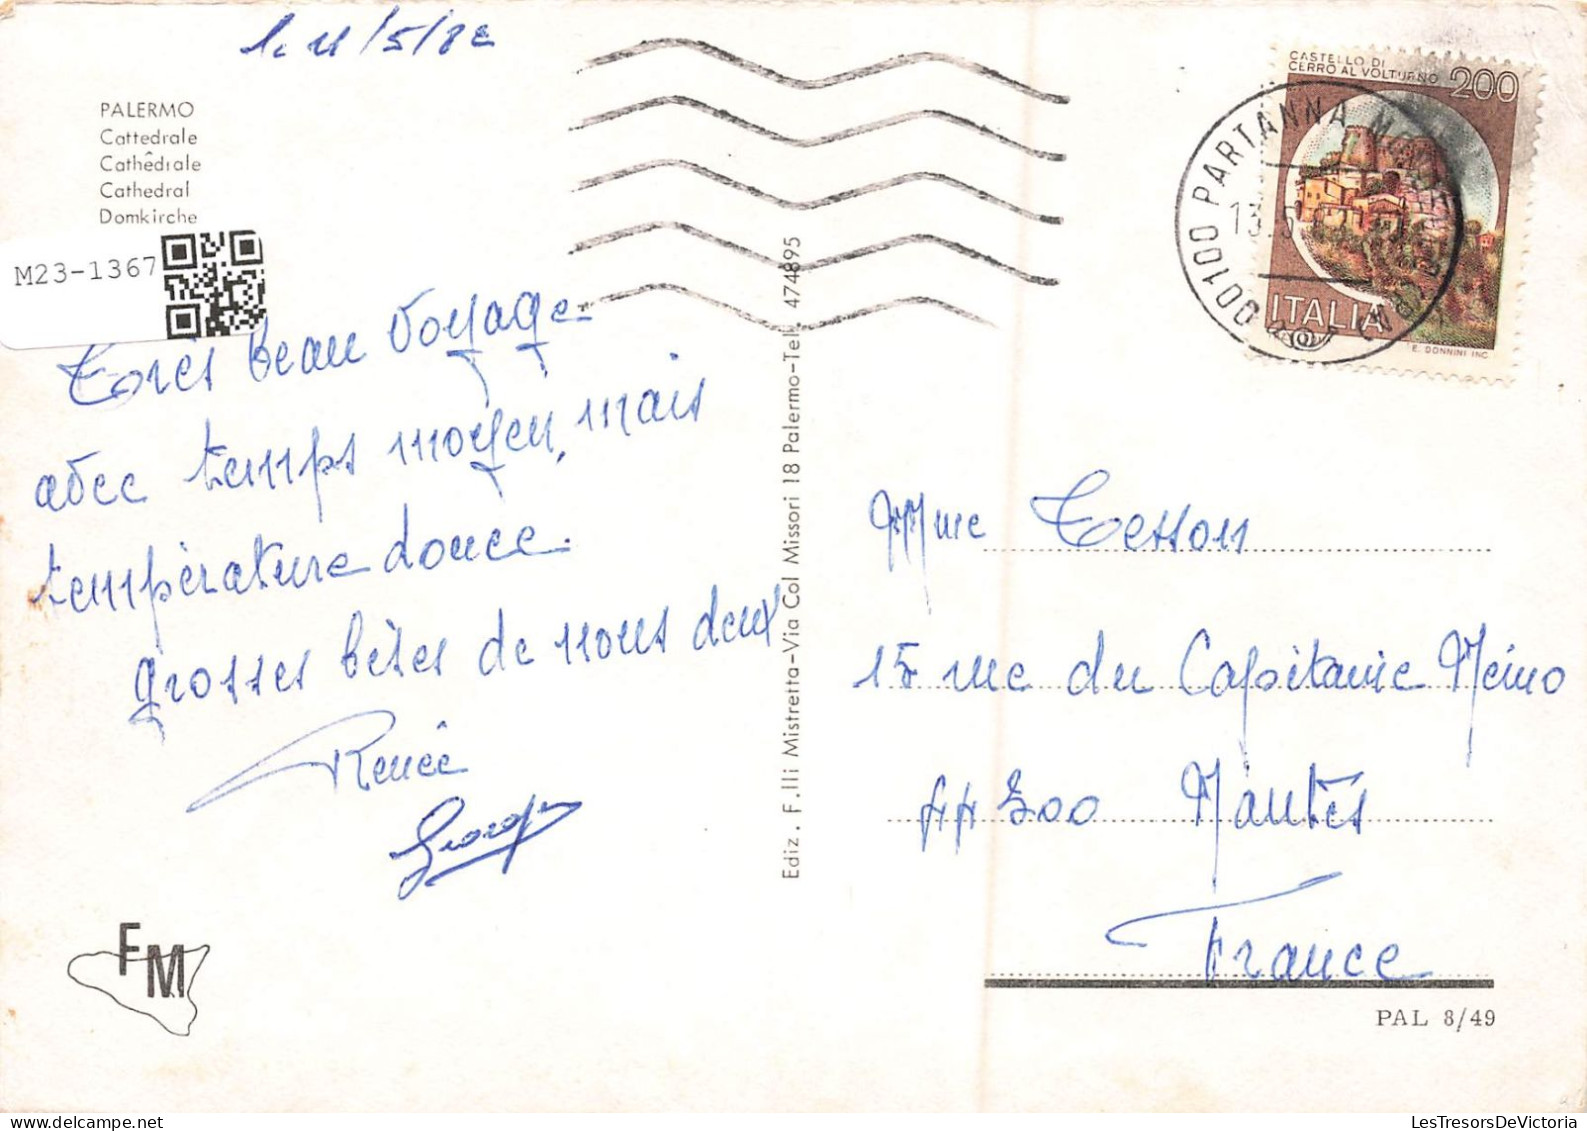 11/5/82
PALERMO
Cattedrale
Cathêdrale
Cathedral
Domkirche
M23-1367
Très beau voyage
avec temps moyen, mais
température douce.
grosses bises de nous deux
Renée
Ediz. F.lli Mistretta-Via Col Missori 18 Palermo-Tel. 474895
FM
CASTELLO DI
CERRO AL VOLTURNO 200
ITALIA
E. DONNINI INC.
90100 PARTANNA
13.5
Mme Tesson
15 rue du Capitaine
44300 Nantes
France
PAL 8/49
LesTresorsDeVictoria